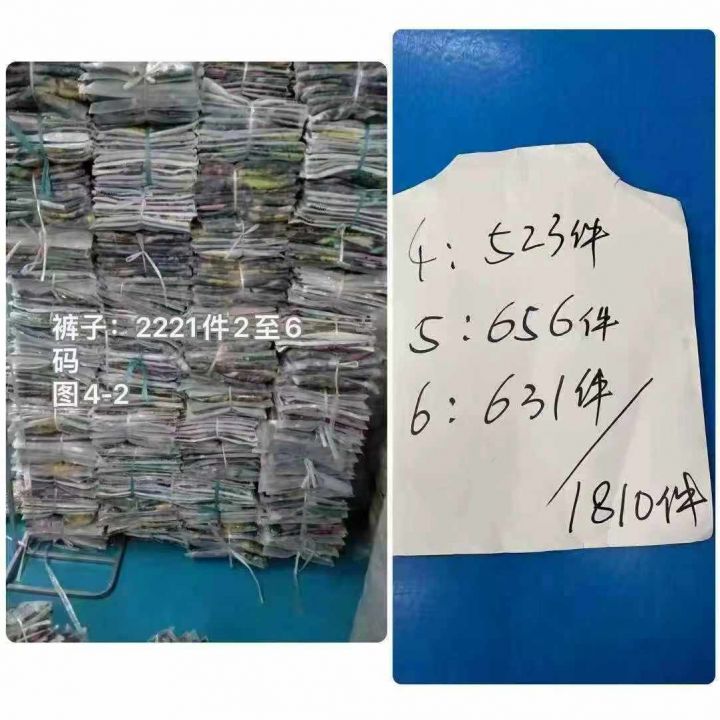 裤子：2221件2至6
码
图4-2
4：523件
5：656件
6：631件
1810件